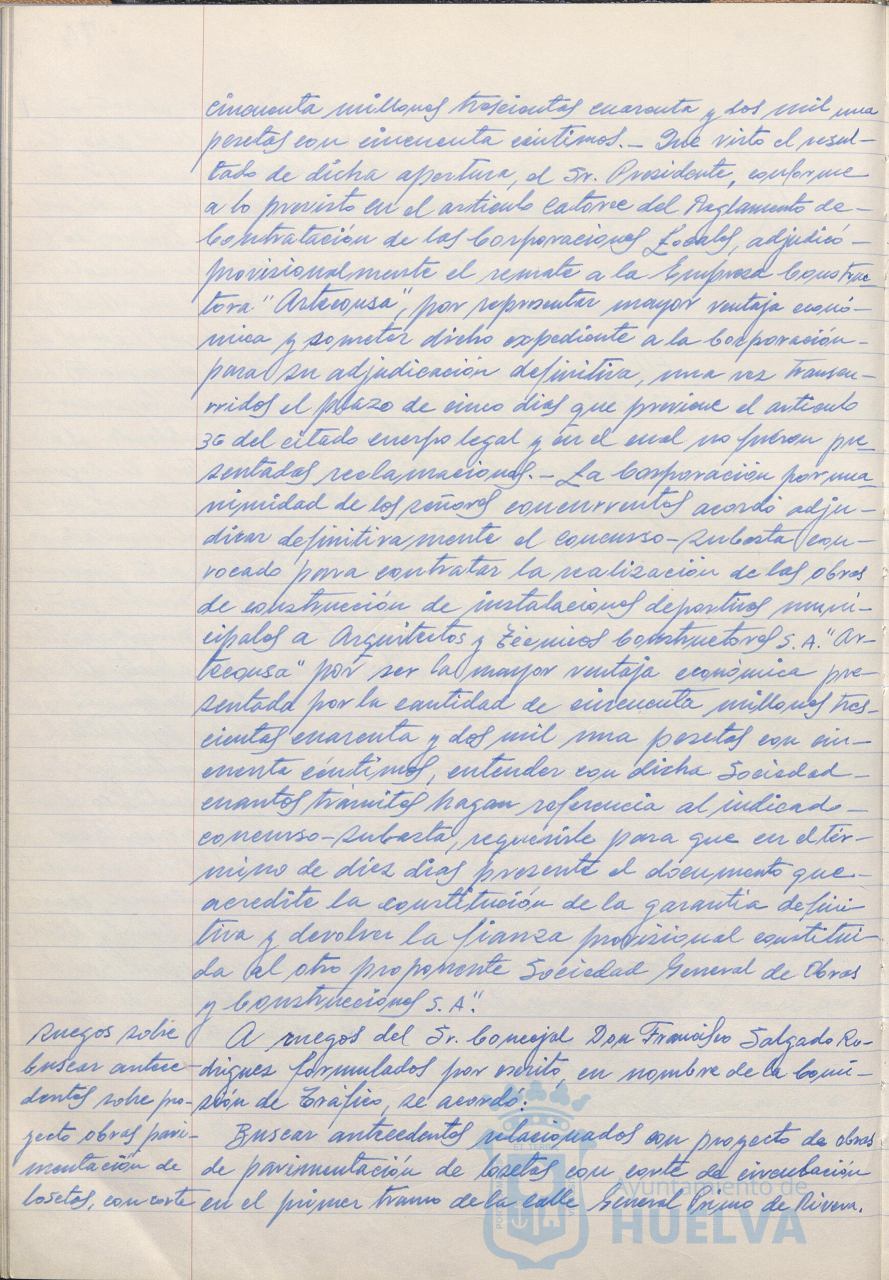 cincuenta millones trescientas cuarenta y dos mil una
pesetas con cincuenta céntimos.- Que visto el resul-
tado de dicha apertura, el Sr. Presidente, conforme
a lo previsto en el artículo catorce del Reglamento de-
Contratación de las Corporaciones Locales, adjudicó-
provisionalmente el remate a la Empresa Construc
tora "Artecousa", por representar mayor ventaja econó-
mica y someter dicho expediente a la Corporación-
para su adjudicación definitiva, una vez transcu-
rridos el plazo de cinco días que previene el artículo
36 del citado cuerpo legal y en el cual no fueron pre-
sentadas reclamaciones.- La Corporación por una
nimidad de los señores concurrentes acordó adju-
dicar definitivamente el concurso-subasta con-
vocado para contratar la realización de las obras
de construcción de instalaciones deportivas muni-
cipales a Arquitectos y Técnicos Constructores S.A. "Ar-
tecousa" por ser la mayor ventaja económica pre-
sentada por la cantidad de cincuenta millones tres-
cientas cuarenta y dos mil una pesetas con cin-
cuenta céntimos, entender con dicha Sociedad-
cuantos trámites hagan referencia al indicado-
concurso-subasta, requerirle para que en el tér-
mino de diez días presente el documento que-
acredite la constitución de la garantía defini-
tiva y devolver la fianza provisional constitui-
da al otro proponente Sociedad General de Obras
y Construcciones S.A".
ruegos sobre
buscar antece-
dentes sobre pro-
yecto obras pavi-
mentación de
losetas, con corte
A ruegos del Sr. Concejal Don Francisco Salgado Ro-
dríguez formulados por escrito, en nombre de la Comi-
sión de Tráfico, se acordó:
Buscar antecedentes relacionados con proyecto de obras
de pavimentación de losetas con corte de circulación
en el primer tramo de la calle General Primo de Rivera.
Ayuntamiento de
HUELVA